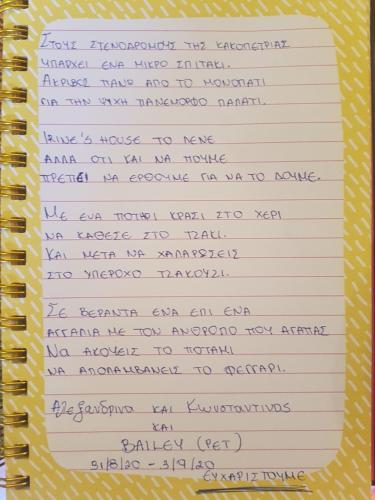 ΣΤΟΥΣ ΣΤΕΝΟΔΡΟΜΟΥΣ ΤΗΣ ΚΑΚΟΠΕΤΡΙΑΣ
ΥΠΑΡΧΕΙ ΕΝΑ ΜΙΚΡΟ ΣΠΙΤΑΚΙ.
ΑΚΡΙΒΩΣ ΠΑΝΩ ΑΠΟ ΤΟ ΜΟΝΟΠΑΤΙ
ΓΙΑ ΤΗΝ ΨΥΧΗ ΠΑΝΕΜΟΡΦΟ ΠΑΛΑΤΙ.
IRINE'S HOUSE ΤΟ ΛΕΝΕ
ΑΛΛΑ ΟΤΙ ΚΑΙ ΝΑ ΠΟΥΜΕ
ΠΡΕΠΕΙ ΝΑ ΕΡΘΟΥΜΕ ΓΙΑ ΝΑ ΤΟ ΔΟΥΜΕ.
ΜΕ ΕΝΑ ΠΟΤΗΡΙ ΚΡΑΣΙ ΣΤΟ ΧΕΡΙ
ΝΑ ΚΑΘΕΣΕ ΣΤΟ ΤΖΑΚΙ.
ΚΑΙ ΜΕΤΑ ΝΑ ΧΑΛΑΡΩΣΕΙΣ
ΣΤΟ ΥΠΕΡΟΧΟ ΤΖΑΚΟΥΖΙ.
ΣΕ ΒΕΡΑΝΤΑ ΕΝΑ ΕΠΙ ΕΝΑ
ΑΓΓΑΛΙΑ ΜΕ ΤΟΝ ΑΝΘΡΩΠΟ ΠΟΥ ΑΓΑΠΑΣ
Να ΑΚΟΥΕΙΣ ΤΟ ΠΟΤΑΜΙ
ΝΑ ΑΠΟΛΑΜΒΑΝΕΙΣ ΤΟ ΦΕΓΓΑΡΙ.
Αλεξανδρινα και Κωνσταντινος
ΚΑΙ
BAILEY (PET)
31/8/20 - 3/9/20
ΕΥΧΑΡΙΣΤΟΥΜΕ